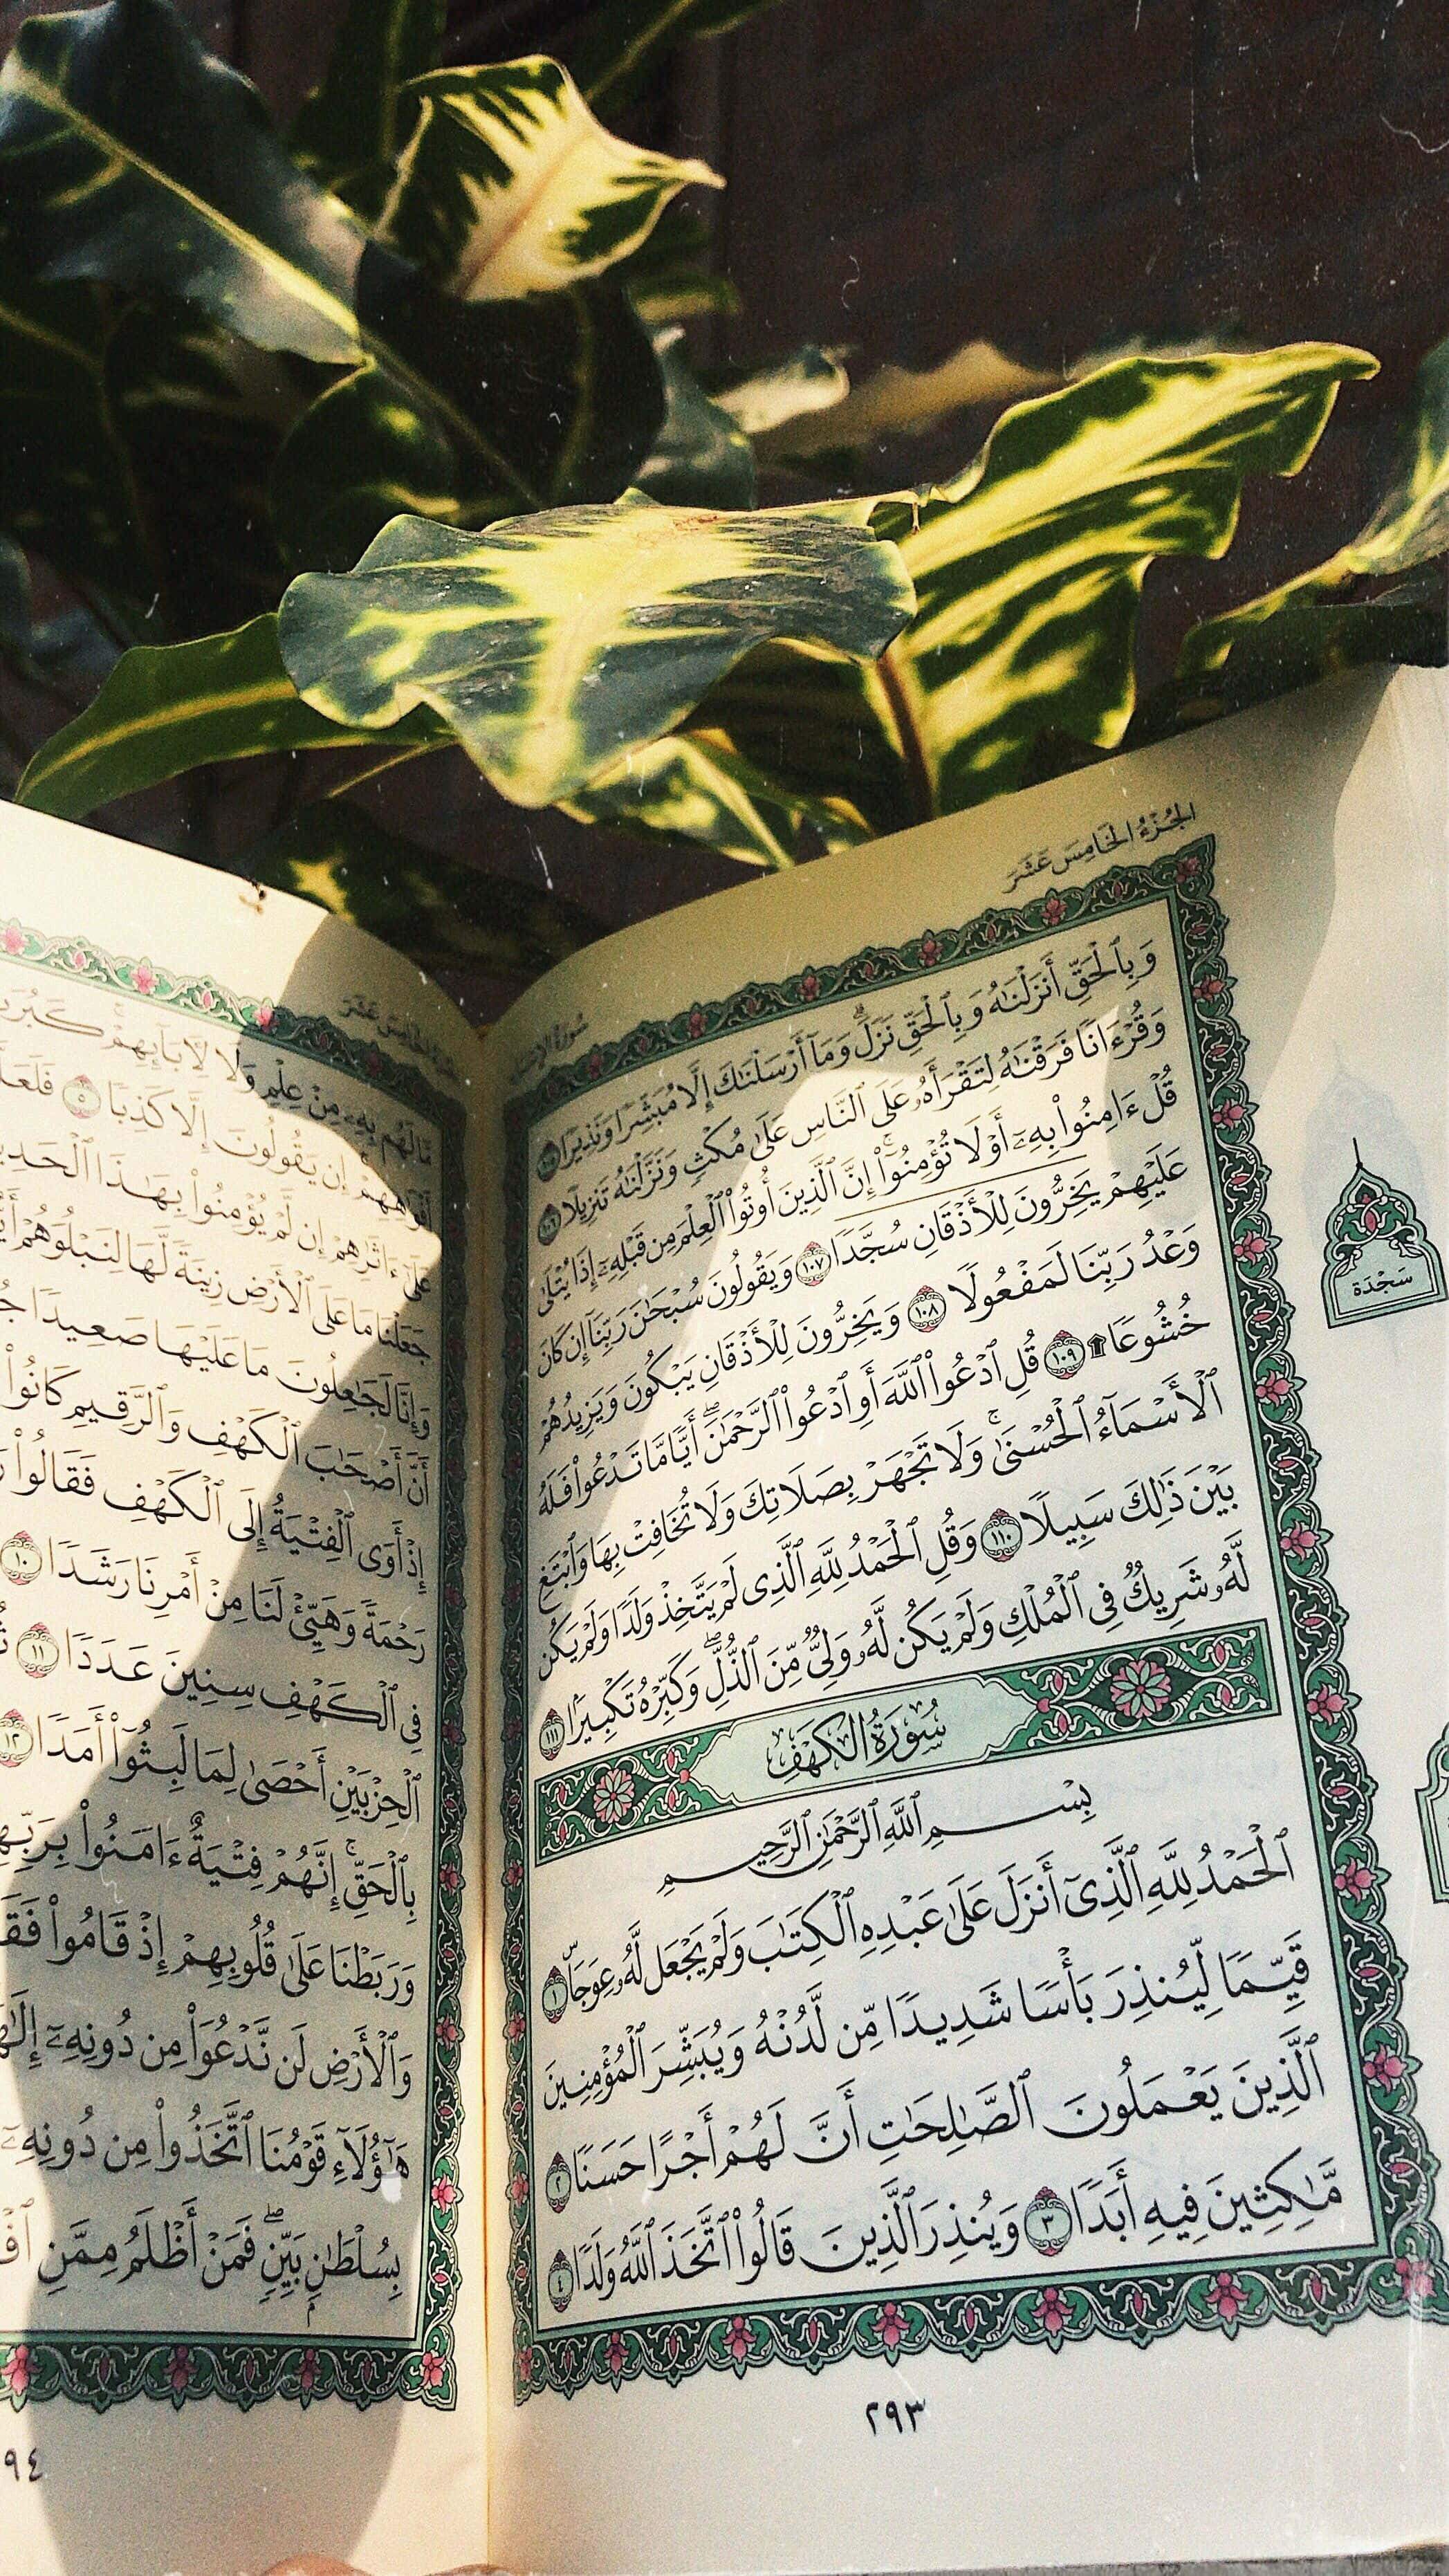 الجُزْءُ الخَامِسَ عَشَرَ
وَبِٱلْحَقِّ أَنزَلْنَٰهُ وَبِٱلْحَقِّ نَزَلَۗ وَمَآ أَرْسَلْنَٰكَ إِلَّا مُبَشِّرًا وَنَذِيرًا ١٠٥
وَقُرْءَانًا فَرَقْنَٰهُ لِتَقْرَأَهُۥ عَلَى ٱلنَّاسِ عَلَىٰ مُكْثٍ وَنَزَّلْنَٰهُ تَنزِيلًا ١٠٦
قُلْ ءَامِنُوا۟ بِهِۦٓ أَوْ لَا تُؤْمِنُوٓا۟ۚ إِنَّ ٱلَّذِينَ أُوتُوا۟ ٱلْعِلْمَ مِن قَبْلِهِۦٓ إِذَا يُتْلَىٰ
عَلَيْهِمْ يَخِرُّونَ لِلْأَذْقَانِ سُجَّدًا ١٠٧ وَيَقُولُونَ سُبْحَٰنَ رَبِّنَآ إِن كَانَ
وَعْدُ رَبِّنَا لَمَفْعُولًا ١٠٨ وَيَخِرُّونَ لِلْأَذْقَانِ يَبْكُونَ وَيَزِيدُهُمْ
خُشُوعًا ۩ ١٠٩ قُلِ ٱدْعُوا۟ ٱللَّهَ أَوِ ٱدْعُوا۟ ٱلرَّحْمَٰنَۖ أَيًّا مَّا تَدْعُوا۟ فَلَهُ
ٱلْأَسْمَآءُ ٱلْحُسْنَىٰۚ وَلَا تَجْهَرْ بِصَلَاتِكَ وَلَا تُخَافِتْ بِهَا وَٱبْتَغِ
بَيْنَ ذَٰلِكَ سَبِيلًا ١١٠ وَقُلِ ٱلْحَمْدُ لِلَّهِ ٱلَّذِى لَمْ يَتَّخِذْ وَلَدًا وَلَمْ يَكُن
لَّهُۥ شَرِيكٌ فِى ٱلْمُلْكِ وَلَمْ يَكُن لَّهُۥ وَلِىٌّ مِّنَ ٱلذُّلِّۖ وَكَبِّرْهُ تَكْبِيرًۢا ١١١
سُورَةُ الكَهْفِ
بِسْمِ ٱللَّهِ ٱلرَّحْمَٰنِ ٱلرَّحِيمِ
ٱلْحَمْدُ لِلَّهِ ٱلَّذِىٓ أَنزَلَ عَلَىٰ عَبْدِهِ ٱلْكِتَٰبَ وَلَمْ يَجْعَل لَّهُۥ عِوَجَاۜ ١
قَيِّمًا لِّيُنذِرَ بَأْسًا شَدِيدًا مِّن لَّدُنْهُ وَيُبَشِّرَ ٱلْمُؤْمِنِينَ
ٱلَّذِينَ يَعْمَلُونَ ٱلصَّٰلِحَٰتِ أَنَّ لَهُمْ أَجْرًا حَسَنًا ٢
مَّٰكِثِينَ فِيهِ أَبَدًا ٣ وَيُنذِرَ ٱلَّذِينَ قَالُوا۟ ٱتَّخَذَ ٱللَّهُ وَلَدًا ٤
٢٩٣
سَجْدَة
مَّا لَهُم بِهِۦ مِنْ عِلْمٍ وَلَا لِءَابَآئِهِمْۚ كَبُرَتْ
أَفْوَٰهِهِمْۚ إِن يَقُولُونَ إِلَّا كَذِبًا ٥
عَلَىٰٓ ءَاثَٰرِهِمْ إِن لَّمْ يُؤْمِنُوا۟ بِهَٰذَا
جَعَلْنَا مَا عَلَى ٱلْأَرْضِ زِينَةً لَّهَا لِنَبْلُوَهُمْ
وَإِنَّا لَجَٰعِلُونَ مَا عَلَيْهَا صَعِيدًا
أَنَّ أَصْحَٰبَ ٱلْكَهْفِ وَٱلرَّقِيمِ كَانُوا۟
إِذْ أَوَى ٱلْفِتْيَةُ إِلَى ٱلْكَهْفِ فَقَالُوا۟
رَحْمَةً وَهَيِّئْ لَنَا مِنْ أَمْرِنَا رَشَدًا ١٠
فِى ٱلْكَهْفِ سِنِينَ عَدَدًا ١١
ٱلْحِزْبَيْنِ أَحْصَىٰ لِمَا لَبِثُوٓا۟ أَمَدًا ١٢
بِٱلْحَقِّۚ إِنَّهُمْ فِتْيَةٌ ءَامَنُوا۟
وَرَبَطْنَا عَلَىٰ قُلُوبِهِمْ إِذْ قَامُوا۟
وَٱلْأَرْضِ لَن نَّدْعُوَا۟ مِن دُونِهِۦٓ
هَٰٓؤُلَآءِ قَوْمُنَا ٱتَّخَذُوا۟ مِن دُونِهِۦٓ
بِسُلْطَٰنٍۭ بَيِّنٍۖ فَمَنْ أَظْلَمُ مِمَّنِ
٩٤